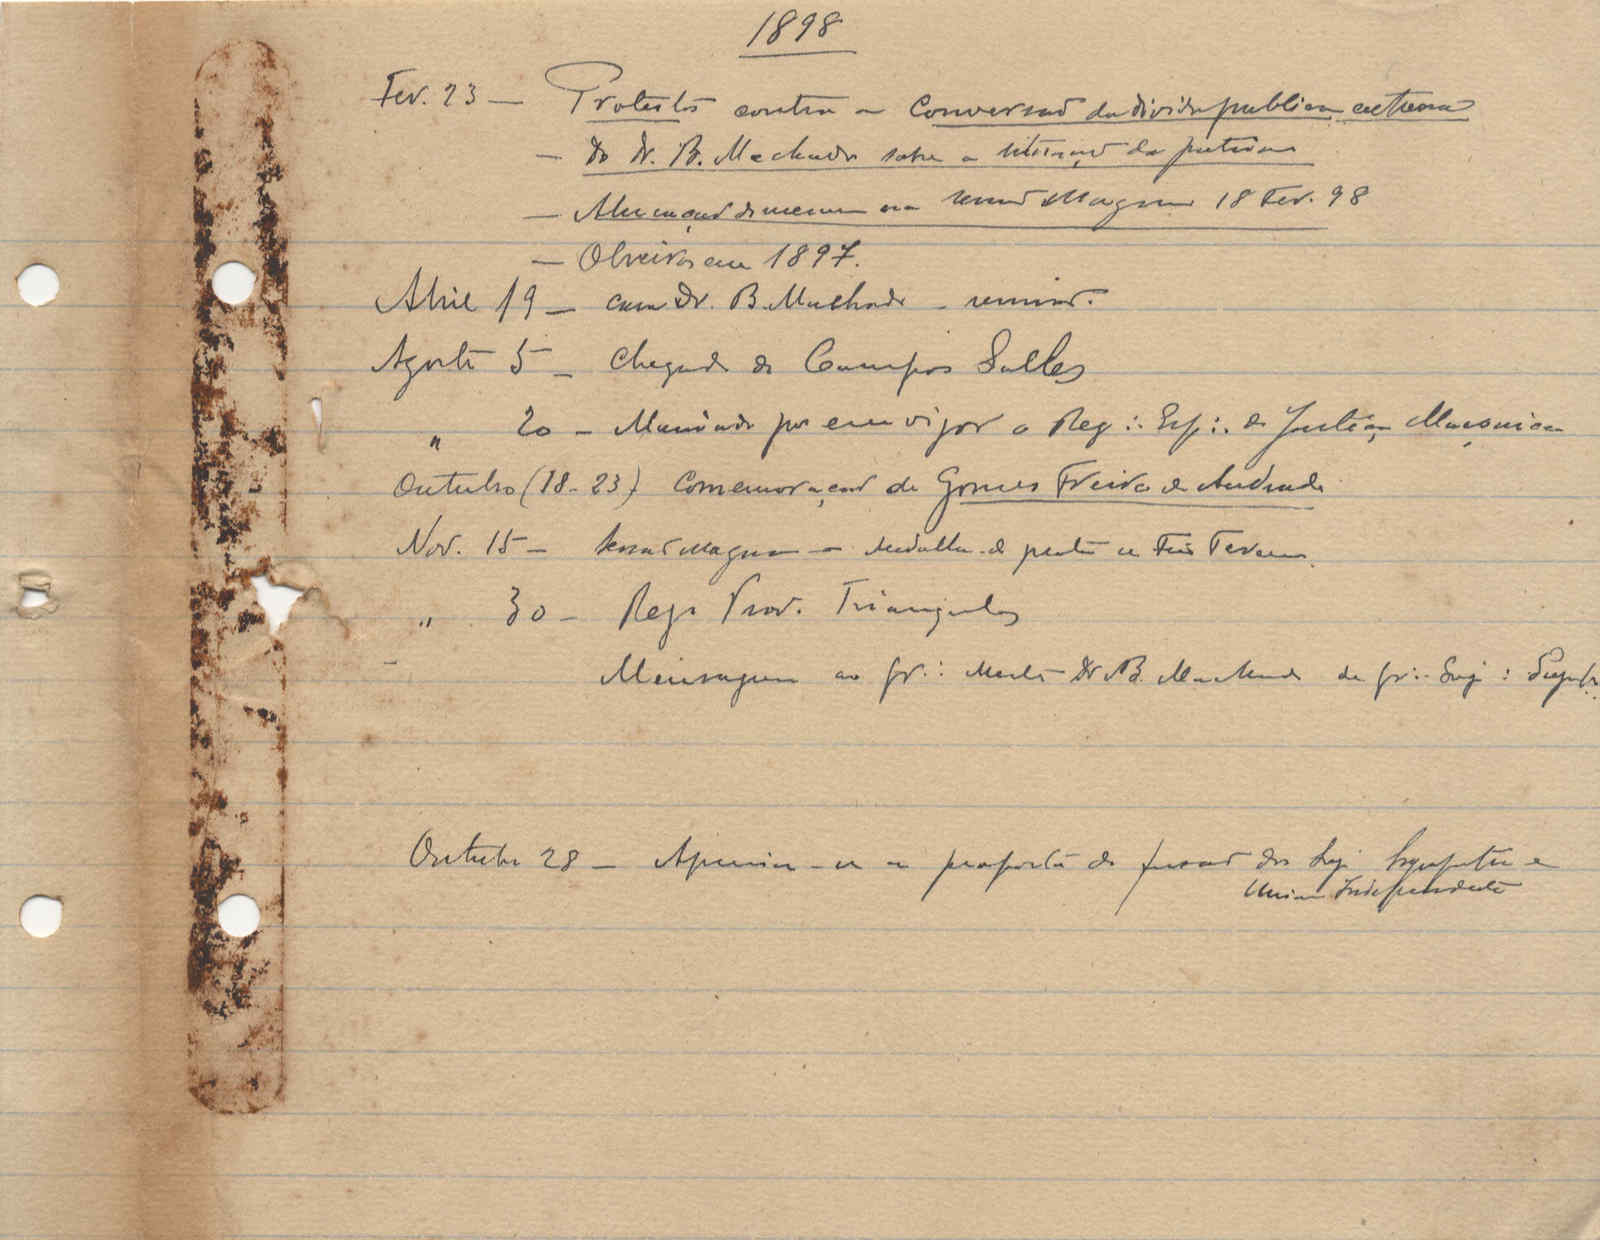 1898
Fev. 23 — Protesto contra a Conversão da divida publica externa
— Do Dr. B. Machado sobre a situação da patria
— na sessão Magna 18 Fev. 98
— Obreiros em 1897.
Abril 19 — com Dr. B. Machado — reunião.
Agosto 5 — Chegada de Campos Salles
" 20 — Mandado por em vigor o Reg∴ Esp∴ de Justiça Maçonica
Outubro (18-23) Comemoração de Gomes Freire de Andrade
Nov. 15 — Sessão Magna — Medalha de prata a
" 30 — Reg. Prov. Triangulos
Mensagem ao Gr∴ Mest. Dr. B. Machado da Gr∴ Loj∴
Outubro 28 — Aprecia-se a proposta de fusão das Loj. Sympathia e
União Independente